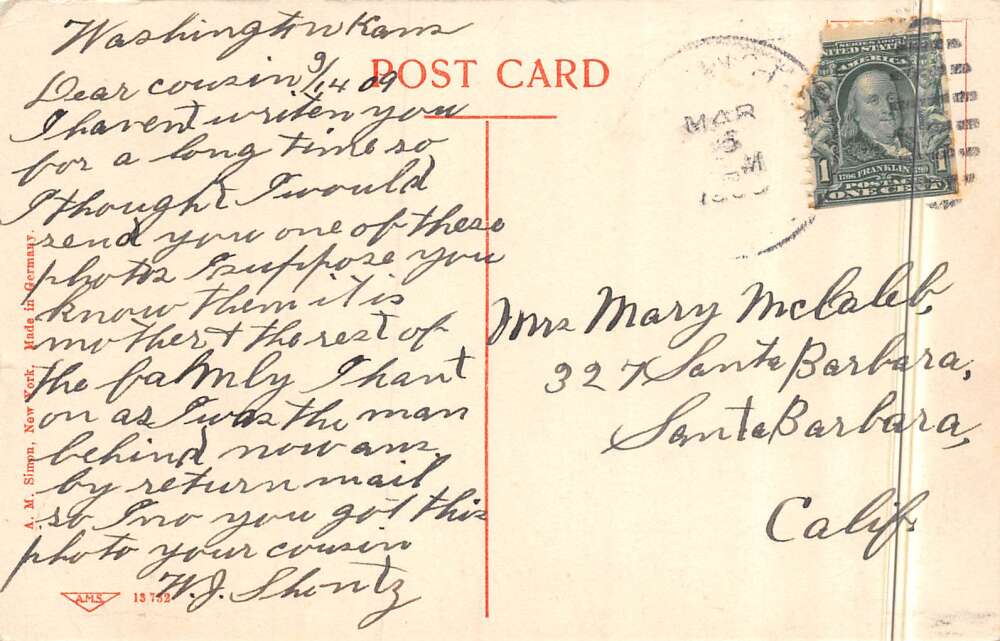 Washington Kans
Dear cousin 3/14 09
I havent writen you
for a long time so
I thought I would
send you one of these
photos I suppose you
know them it is
mother & the rest of
the family I hant
on as I was the man
behind now ans
by return mail
so I no you got this
photo your cousin
W.J. Shontz
A. M. Simon, New York. Made in Germany.
A.M.S. 13732
POST CARD
MAR
M
SERIES 1902
UNITED STATES OF
AMERICA
1 1
1706 FRANKLIN 1790
POSTAGE
ONE CENT
Mrs Mary McCaleb,
327 Santa Barbara,
Santa Barbara,
Calif.